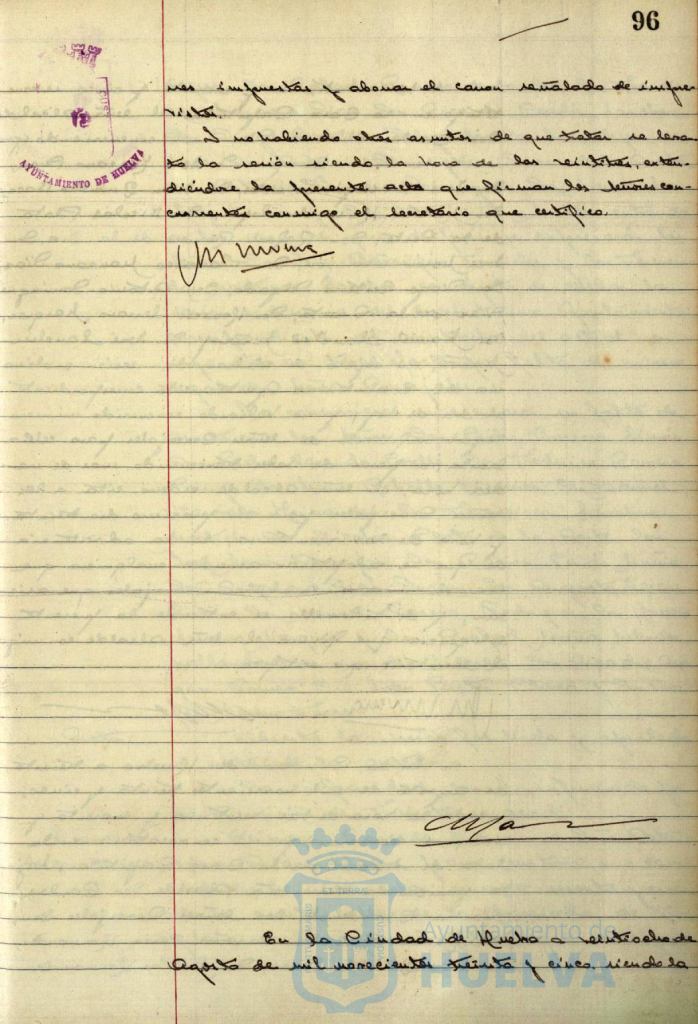 96
AYUNTAMIENTO DE HUELVA
nes impuestas y abonar el canon señalado de impre-
vistos.
Y no habiendo otros asuntos de que tratar se levan-
tó la sesión siendo la hora de las veintitres, exten-
diéndose la presente acta que firman los señores con-
currentes conmigo el secretario que certifico.
En la Ciudad de Huelva a veintiocho de
Agosto de mil novecientos treinta y cinco, siendo la
Ayuntamiento de
HUELVA